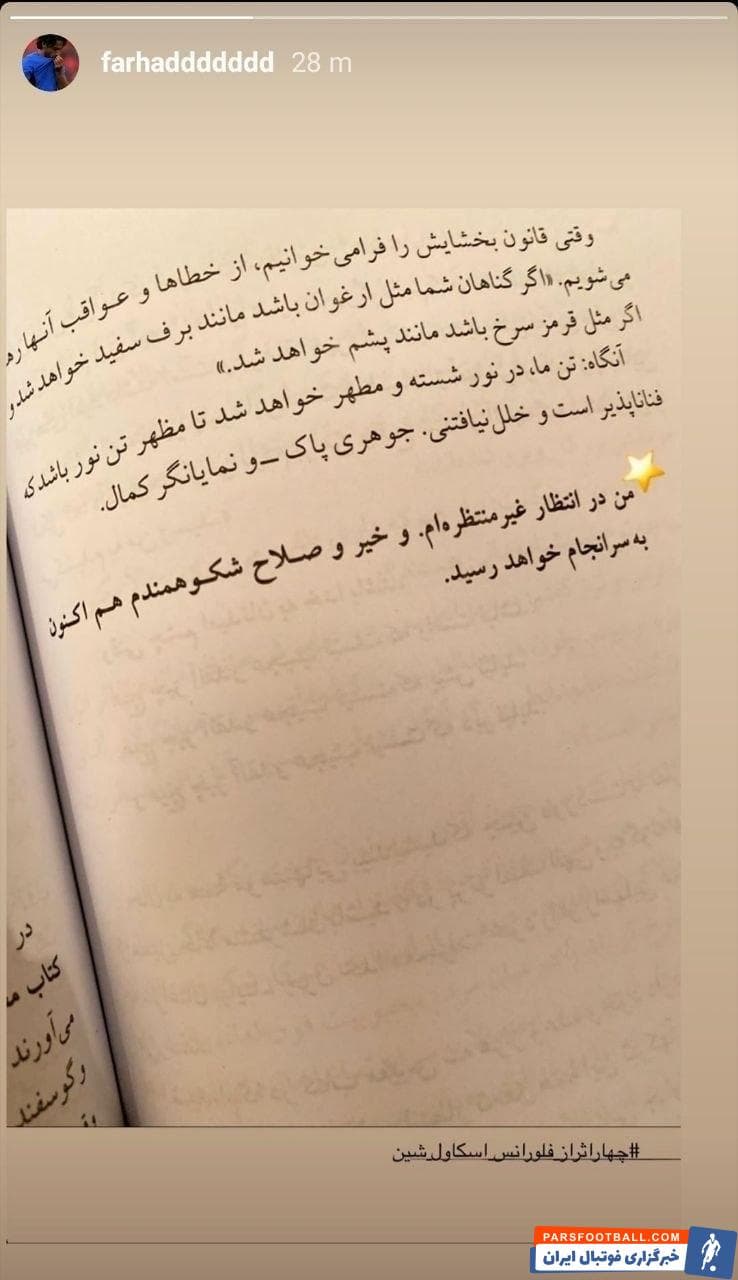 farhaddddddd 28 m
وقتی قانون بخشایش را فرامی‌خوانیم، از خطاها و عـواقب آنـها
می‌شویم. «اگر گناهان شما مثل ارغوان باشد مانند برف سفید خواهد شد و
اگر مثل قرمز سرخ باشد مانند پشم خواهد شد.»
آنگاه: تن ما، در نور شسته و مطهر خواهد شد تا مظهر تن نور باشد که
فناناپذیر است و خلل‌نیافتنی. جوهری پاک ـ و نمایانگر کمال.
من در انتظار غیرمنتظره‌ام. و خیر و صـلاح شکـوهمندم هـم اکـنون
به سرانجام خواهد رسید.
در
کتاب
می‌آورند
وگوسفند
#چهاراثراز_فلورانس_اسکاول_شین
PARSFOOTBALL.COM
خبرگزاری فوتبال ایران